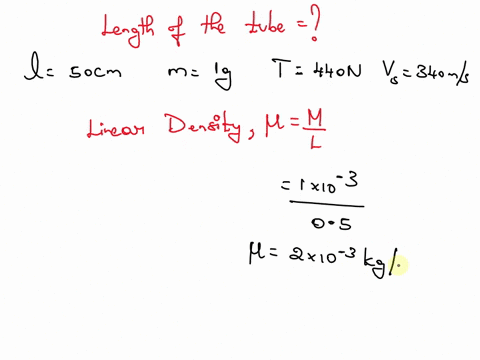 Length of the tube = ?
l = 50cm m = 1g T = 440N Vs = 340m/s
Linear Density, μ = M/L
= 1×10⁻³
0.5
μ = 2×10⁻³ kg/